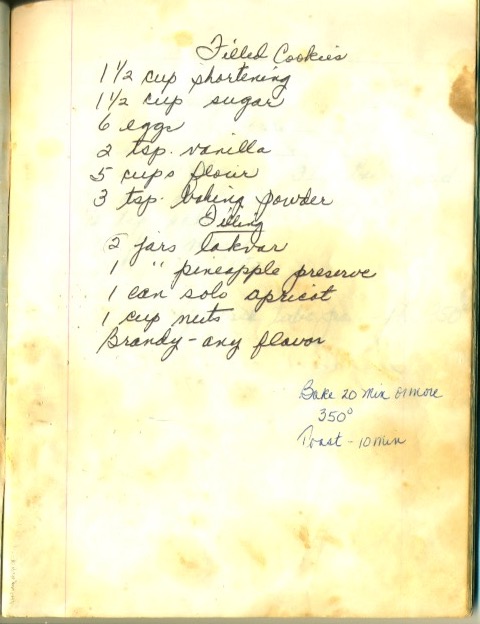 Filled Cookies
1 1/2 cup shortening
1 1/2 cup sugar
6 eggs
2 tsp. vanilla
5 cups flour
3 tsp. baking powder
Filling
2 jars lakvar
1 " pineapple preserve
1 can solo apricot
1 cup nuts
Brandy - any flavor
Bake 20 Min or more
350°
Toast - 10 min